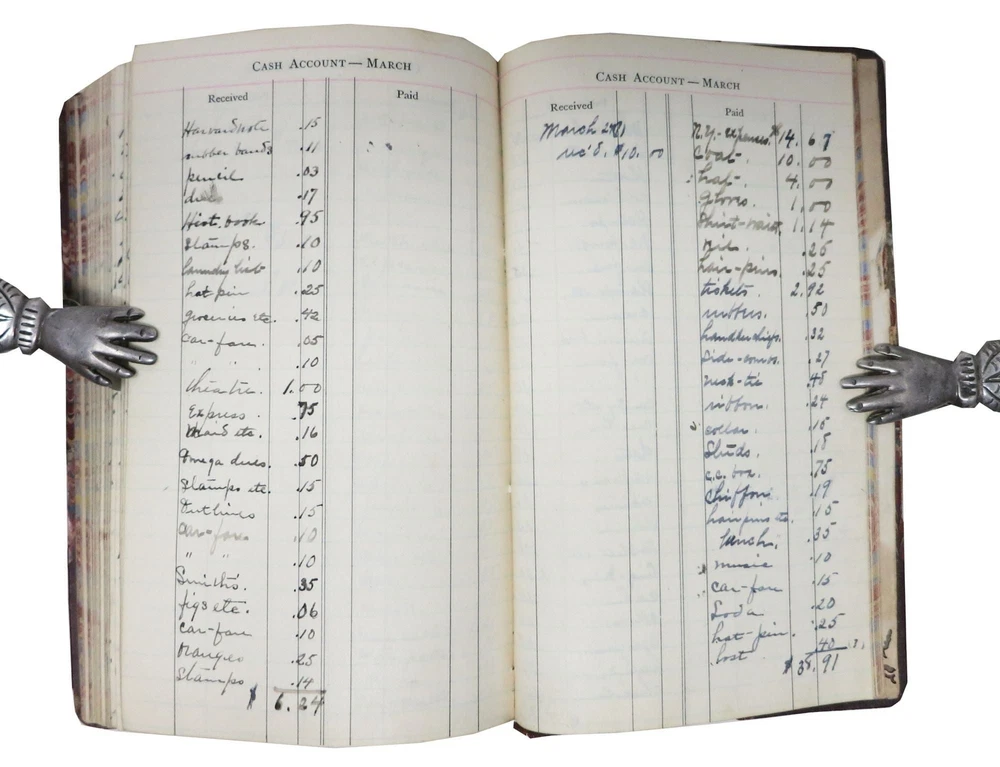 CASH ACCOUNT — MARCH
Received Paid
rubber bands .11
pencil .03
.17
Hist. book .95
Stamps. .10
laundry list .10
hat pin .25
groceries etc. .42
car-fare. .05
" " .10
theatre. 1.00
Express. .75
Maid etc. .16
Omega dues. .50
Stamps etc. .15
Outlines .15
car-fare .10
" " .10
Smith's. .35
figs etc. .06
car-fare .10
Oranges .25
Stamps .14
$ 6.24
CASH ACCOUNT — MARCH
Received Paid
March
rec'd. $10.00
N.Y.-expenses. $14.67
Coat. 10.00
hat. 4.00
gloves. 1.00
Shirt-waist. 1.14
.25
hair-pins. .25
tickets. 2.92
rubbers. .50
handkerchiefs. .32
Side-combs. .27
neck-tie
ribbon. .24
collar.
Studs.
.75
Chiffon. .19
hairpins etc. .15
lunch. .35
music .10
car-fare .15
Soda .20
hat-pin. .25
lost .40